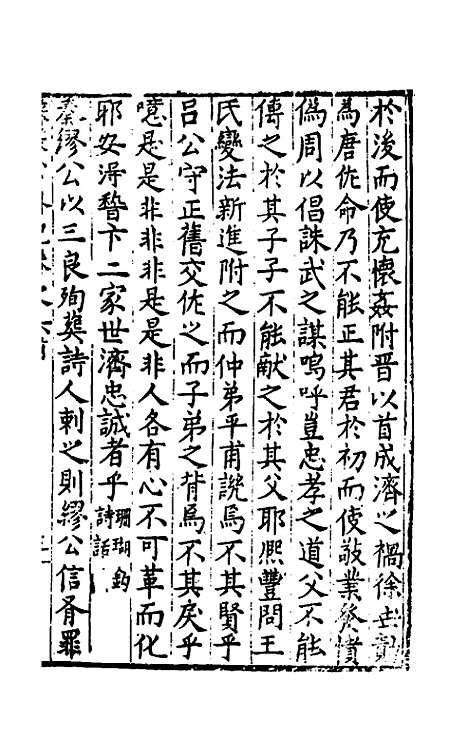 於後而使充懷姦附晋以首成濟之禍徐世勣
為唐佐命乃不能正其君於初而使敬業發憤
偽周以倡誅武之謀嗚呼豈忠孝之道父不能
傳之於其子子不能献之於其父耶熈豐間王
氏變法新進附之而仲弟平甫說焉不其賢乎
吕公守正舊交佐之而子弟之背焉不其戾乎
噫是是非非非是是非人各有心不可革而化
耶安淂嵆卞二家世濟忠誠者乎珊瑚鈎
詩話
秦繆公以三良殉葬詩人刺之則繆公信有罪